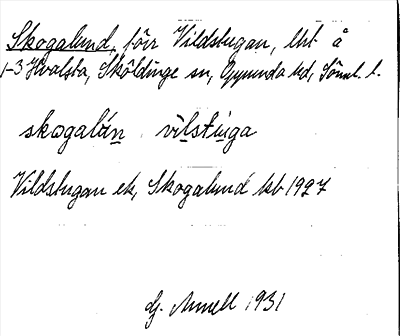 Skogalund, förr Vildstugan, lht å
1-3 Hvalsta, Sköldinge sn, Oppunda hd, Sörml. l.
skogalún vìlstùga
Vildstugan ek, Skogalund kb 1927
G. Annell 1931